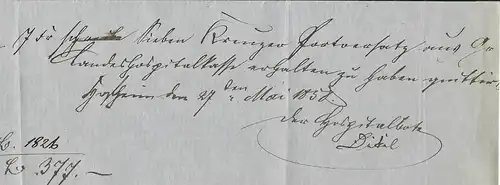 7 Kr Sieben Kreuzer Portoersatz aus Gr.
Landeshospitalkasse erhalten zu haben quittirt
Hofheim den 27ten Mai 1858.
Der Hospitalbote
Dikel
L. 1826
377.—